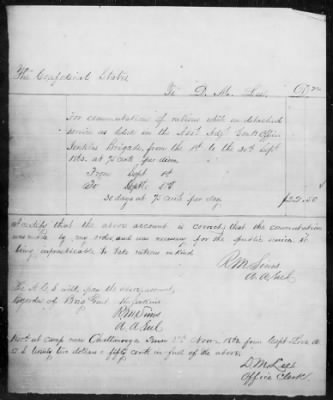 The Confederate States
To D. M. Lee Dr
For commutation of rations while on detached
service as clerk in the Asst Adjt Genls Office
Jenkins Brigade, from the 1st to the 30th Sept
1863. at 75 cents per diem
From Sept 1st
To Sept 30
30 days at 75 cents per day $22.50
I certify that the above account is correct; that the commutation
was made by my order, and was necessary for the public service, it
being impracticable to take rations in kind
R M Sims
A. A. Genl
The A C S will pay the above account,
by order of Brig Genl Jenkins
R M Sims
A. A. Genl
at camp near Chattanooga Tenn Nov. 1863 from Capt
C S twenty two dollars & fifty cents in full of the above.
D. M. Lee
Office Clerk